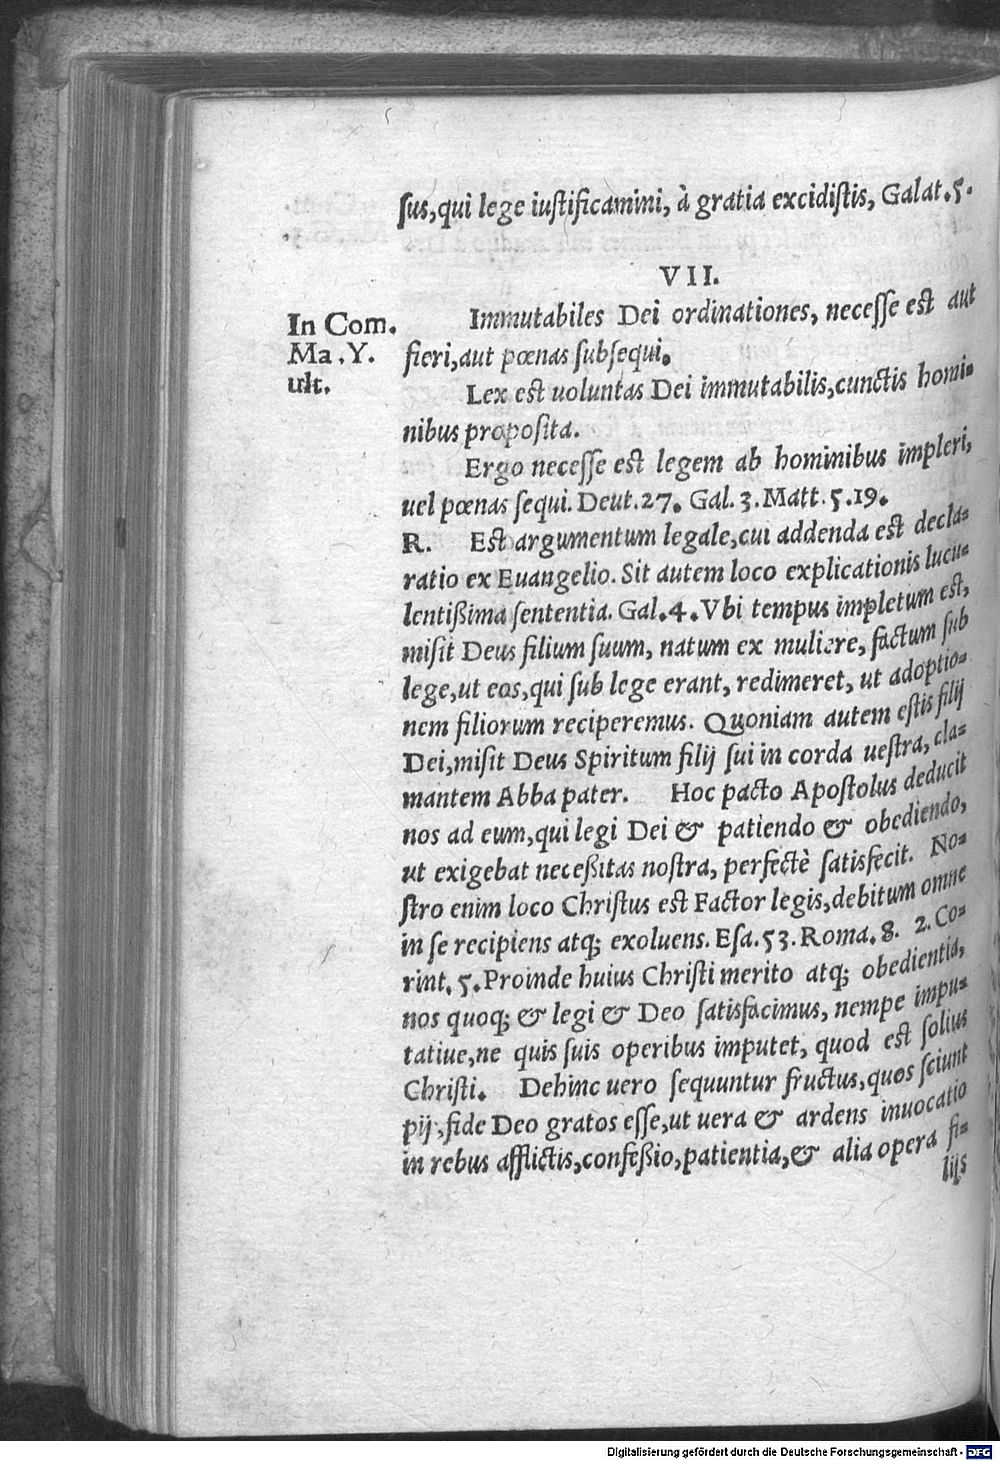 ſus,qui lege iuſtificamini, à gratia excidiſtis, Galat.5.
VII.
In Com.
Ma.Y.
ult.
Immutabiles Dei ordinationes, neceſſe eſt aut
fieri,aut pœnas ſubſequi.
Lex eſt uoluntas Dei immutabilis,cunctis homi-
nibus propoſita.
Ergo neceſſe eſt legem ab hominibus impleri,
uel pœnas ſequi. Deut.27. Gal.3.Matt.5.19.
R. Eſt argumentum legale,cui addenda eſt decla-
ratio ex Euangelio. Sit autem loco explicationis lucu-
lentißima ſententia. Gal.4.Vbi tempus impletum eſt,
miſit Deus filium ſuum, natum ex muliere, factum ſub
lege,ut eos,qui ſub lege erant, redimeret, ut adoptio-
nem filiorum reciperemus. Quoniam autem eſtis filij
Dei,miſit Deus Spiritum filij ſui in corda ueſtra, cla-
mantem Abba pater. Hoc pacto Apoſtolus deducit
nos ad eum,qui legi Dei & patiendo & obediendo,
ut exigebat neceßitas noſtra, perfectè ſatisfecit. No-
ſtro enim loco Chriſtus eſt Factor legis,debitum omne
in ſe recipiens atq; exoluens. Eſa.53.Roma.8. 2.Co-
rint.5.Proinde huius Chriſti merito atq; obedientia,
nos quoq; & legi & Deo ſatisfacimus, nempe impu-
tatiue,ne quis ſuis operibus imputet, quod eſt ſolius
Chriſti. Dehinc uero ſequuntur fructus,quos ſciunt
pij,fide Deo gratos eſſe,ut uera & ardens inuocatio
in rebus afflictis,confeßio,patientia,& alia opera fi-
lijs
Digitalisierung gefördert durch die Deutsche Forschungsgemeinschaft - DFG